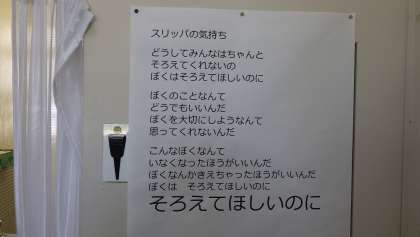 スリッパの気持ち
どうしてみんなはちゃんと
そろえてくれないの
ぼくはそろえてほしいのに
ぼくのことなんて
どうでもいいいんだ
ぼくを大切にしようなんて
思ってくれないんだ
こんなぼくなんて
いなくなったほうがいいんだ
ぼくなんかきえちゃったほうがいいんだ
ぼくは　そろえてほしいのに
そろえてほしいのに